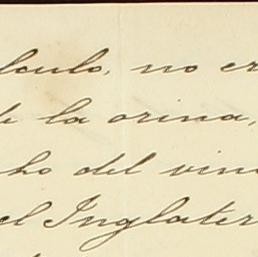 lculo, no er
de la orina,
ho del vino
el Inglater